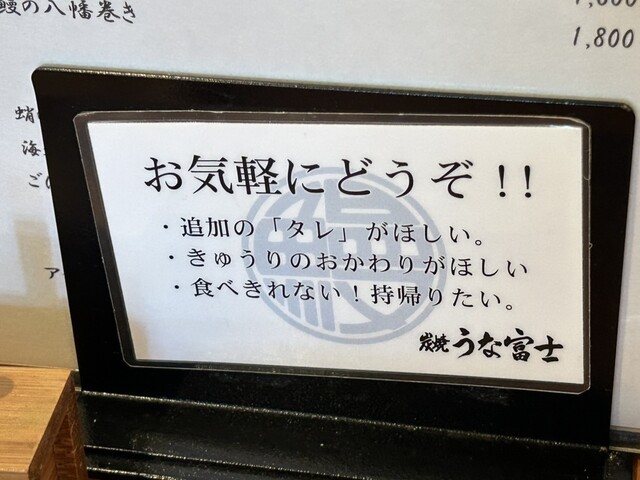 鰻の八幡巻き
1,800
お気軽にどうぞ!!
・追加の「タレ」がほしい。
・きゅうりのおかわりがほしい
・食べきれない!持帰りたい。
鰻
炭焼 うな富士